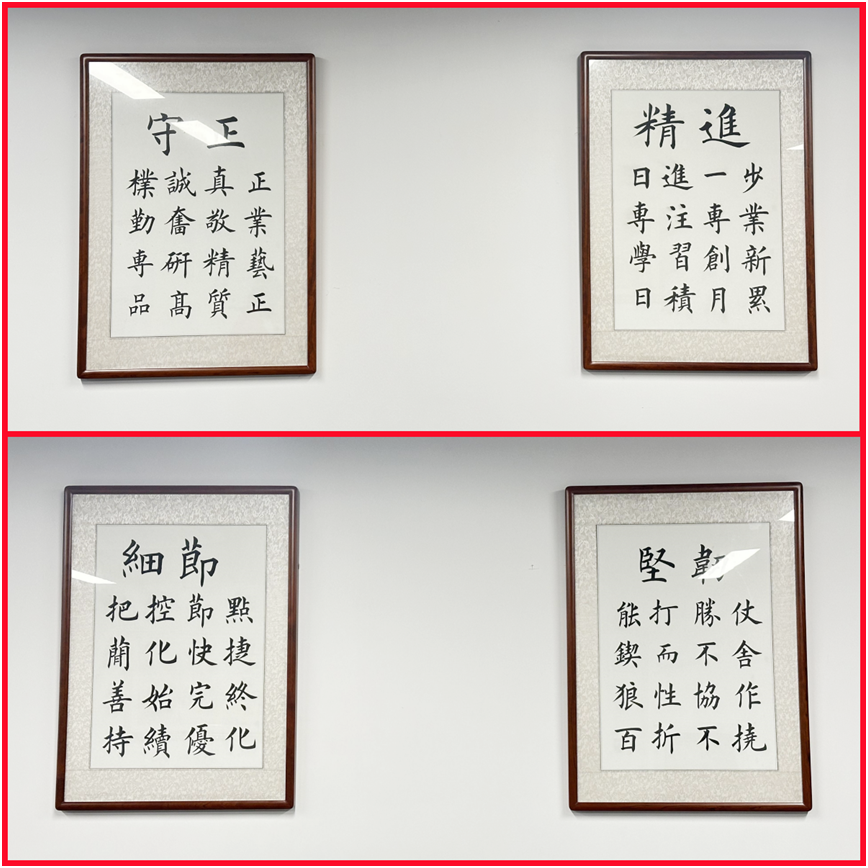 守正
樸誠真正
勤奮敬業
專研精藝
品高質正
精進
日進一步
專注專業
學習創新
日積月累
細節
把控節點
簡化快捷
善始完終
持續優化
堅韌
能打勝仗
鍥而不舍
狼性協作
百折不撓